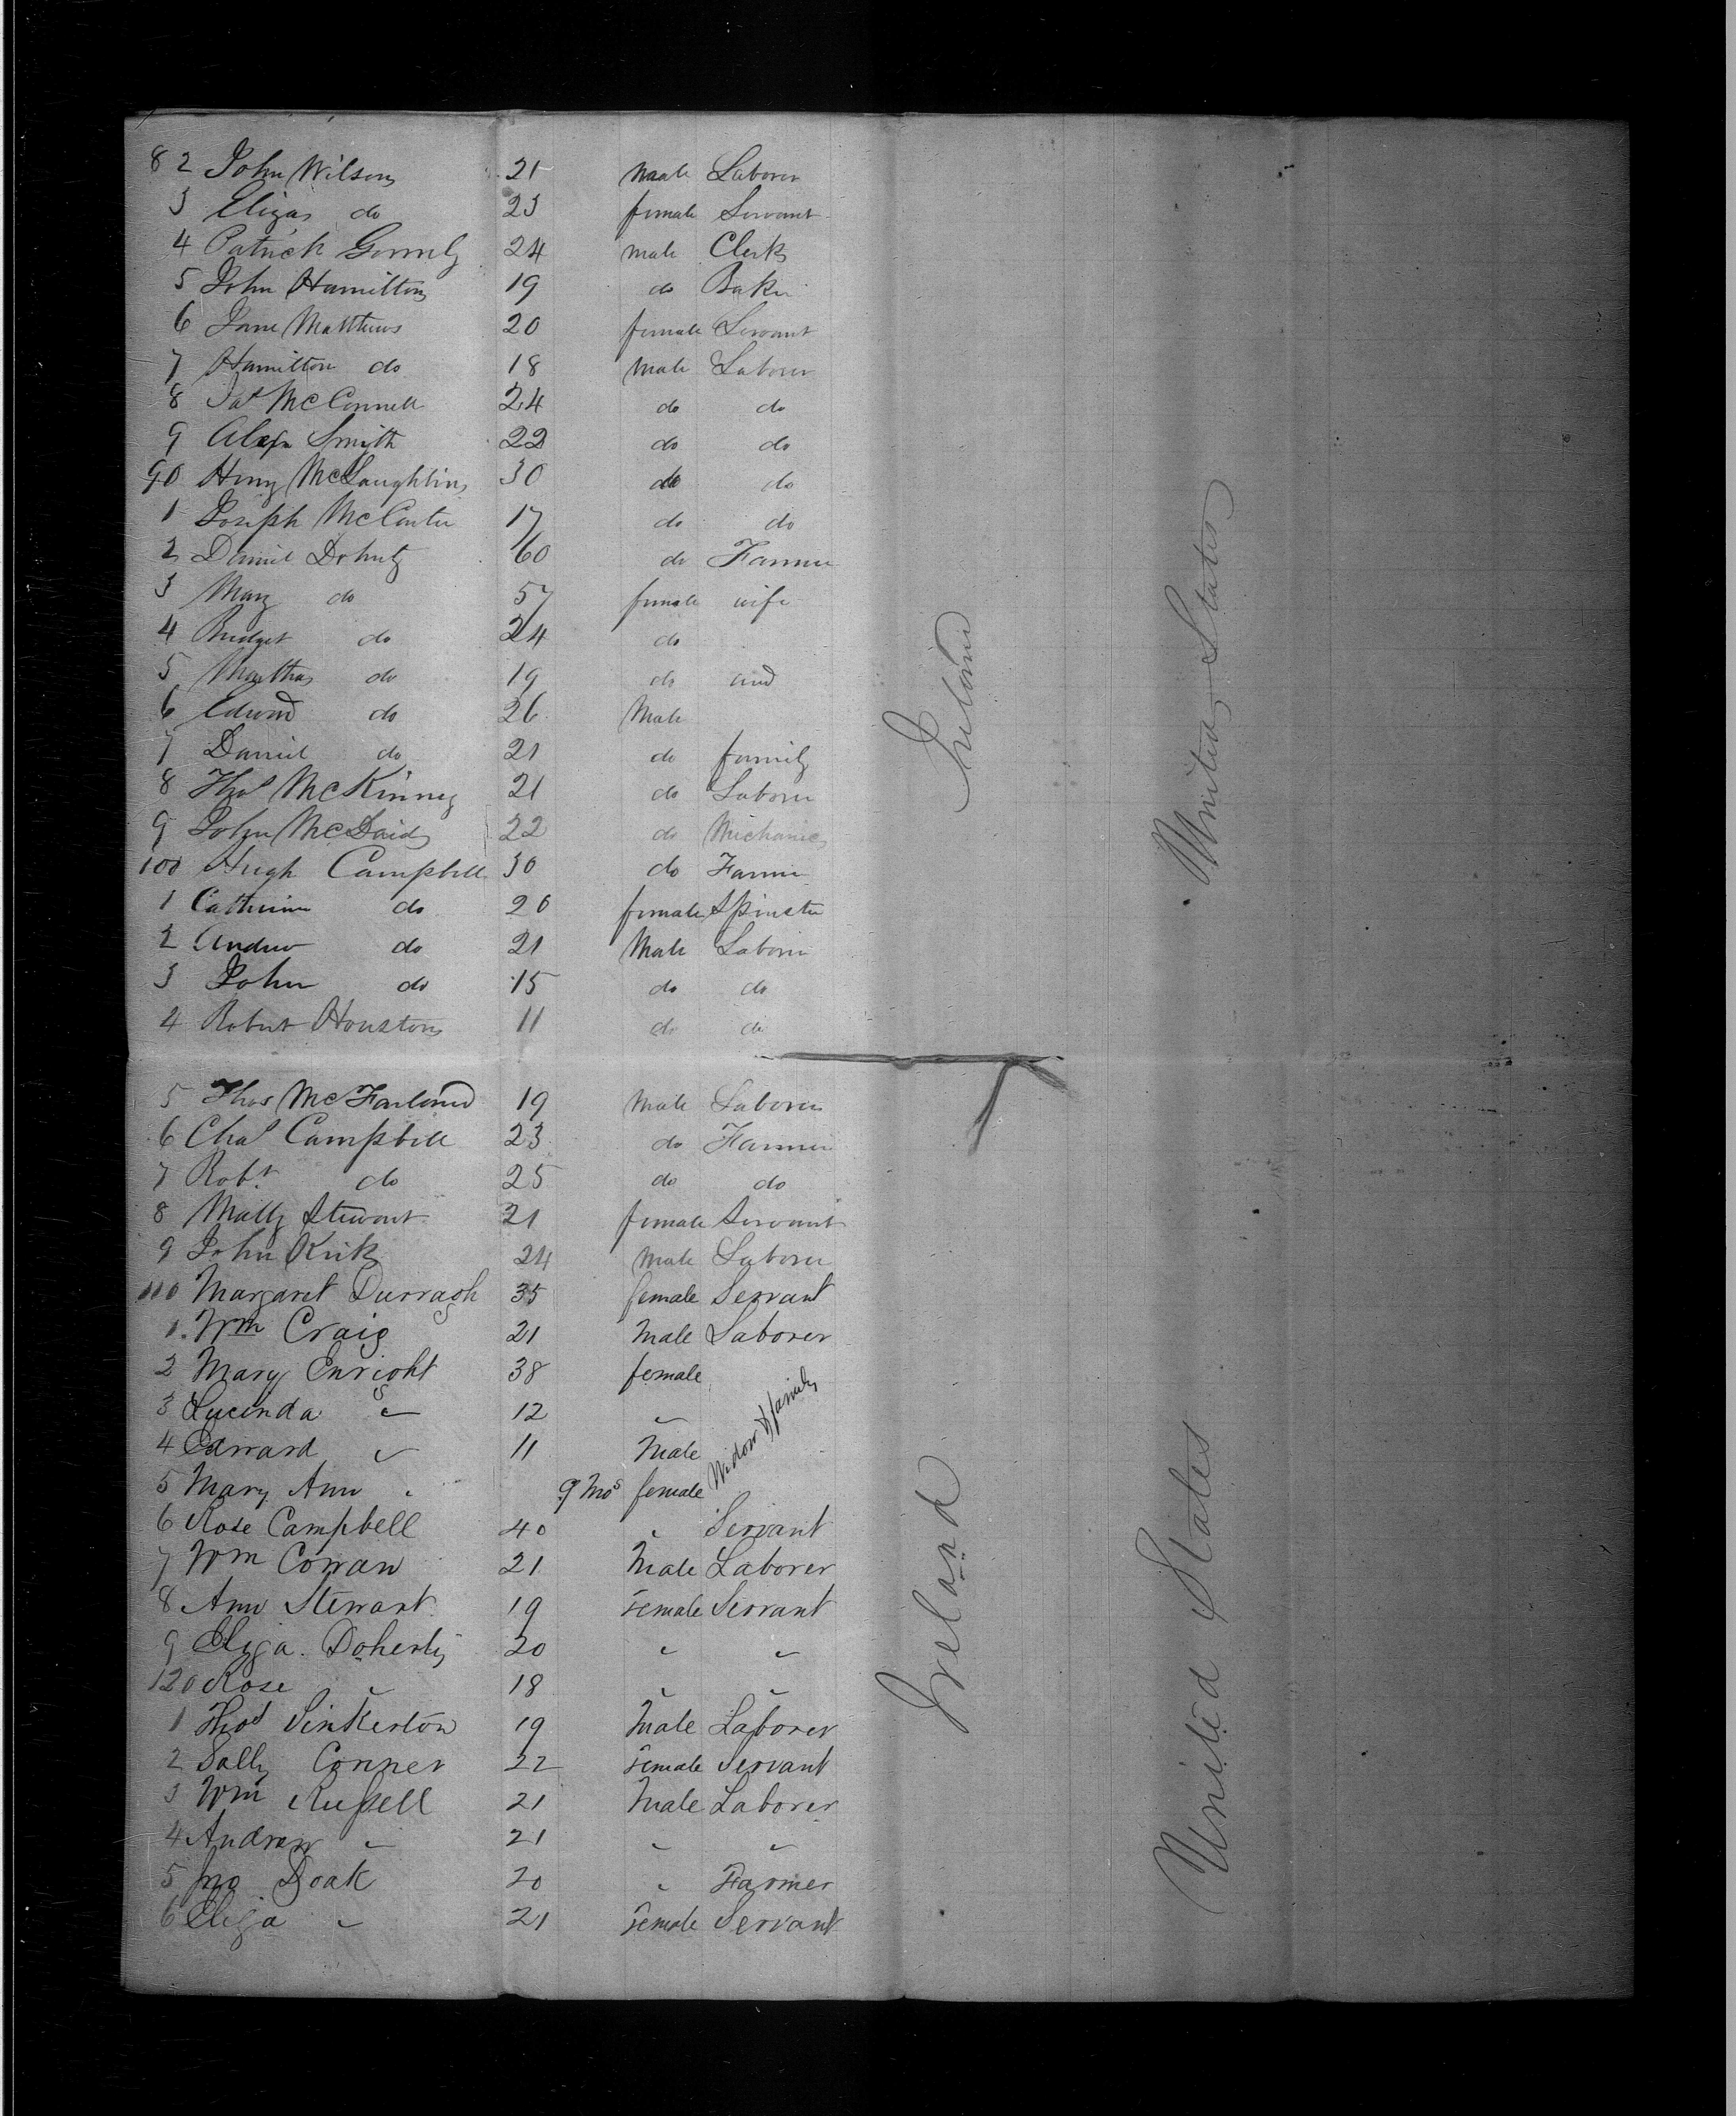 82 John Wilson 21 male Laborer
3 Eliza do 23 female Servant
4 Patrick Gormly 24 male Clerk
5 John Hamilton 19 do Baker
6 Jane Matthews 20 female Servant
7 Hamilton do 18 male Laborer
8 Jas McConnell 24 do do
9 Alexr Smith 22 do do
90 Henry McLaughlin 30 do do
1 Joseph McCarter 17 do do
2 Daniel Doherty 60 do Farmer
3 Mary do 57 female wife
4 Bridget do 24 do
5 Martha do 19 do and
6 Edward do 26 Male
7 Daniel do 21 do family
8 Thos McKinney 21 do Laborer
9 John McDaid 22 do Mechanic
100 Hugh Campbell 30 do Farmer
1 Catherine do 26 female Spinster
2 Andrew do 21 Male Laborer
3 John do 15 do do
4 Robert Houston 11 do do
Ireland
United States
5 Thos McFarland 19 male Laborer
6 Chas Campbell 23 do Farmer
7 Robt do 25 do do
8 Matty Stewart 21 female Servant
9 John Kirk 24 male Laborer
110 Margaret Durragh 35 female Servant
1 Wm Craig 21 Male Laborer
2 Mary Enright 38 female
3 Lucinda " 12 "
4 Edward " 11 Male
5 Mary Ann " 9 Mos female
Widow & family
6 Rose Campbell 40 " Servant
7 Wm Cowan 21 Male Laborer
8 Ann Stewart 19 Female Servant
9 Eliza Doherty 20 " "
120 Rose " 18 " "
1 Thos Sinkerton 19 Male Laborer
2 Sally Conner 22 Female Servant
3 Wm Russell 21 Male Laborer
4 Andrew " 21 " "
5 Jno Doak 20 " Farmer
6 Eliza " 21 Female Servant
Ireland
United States